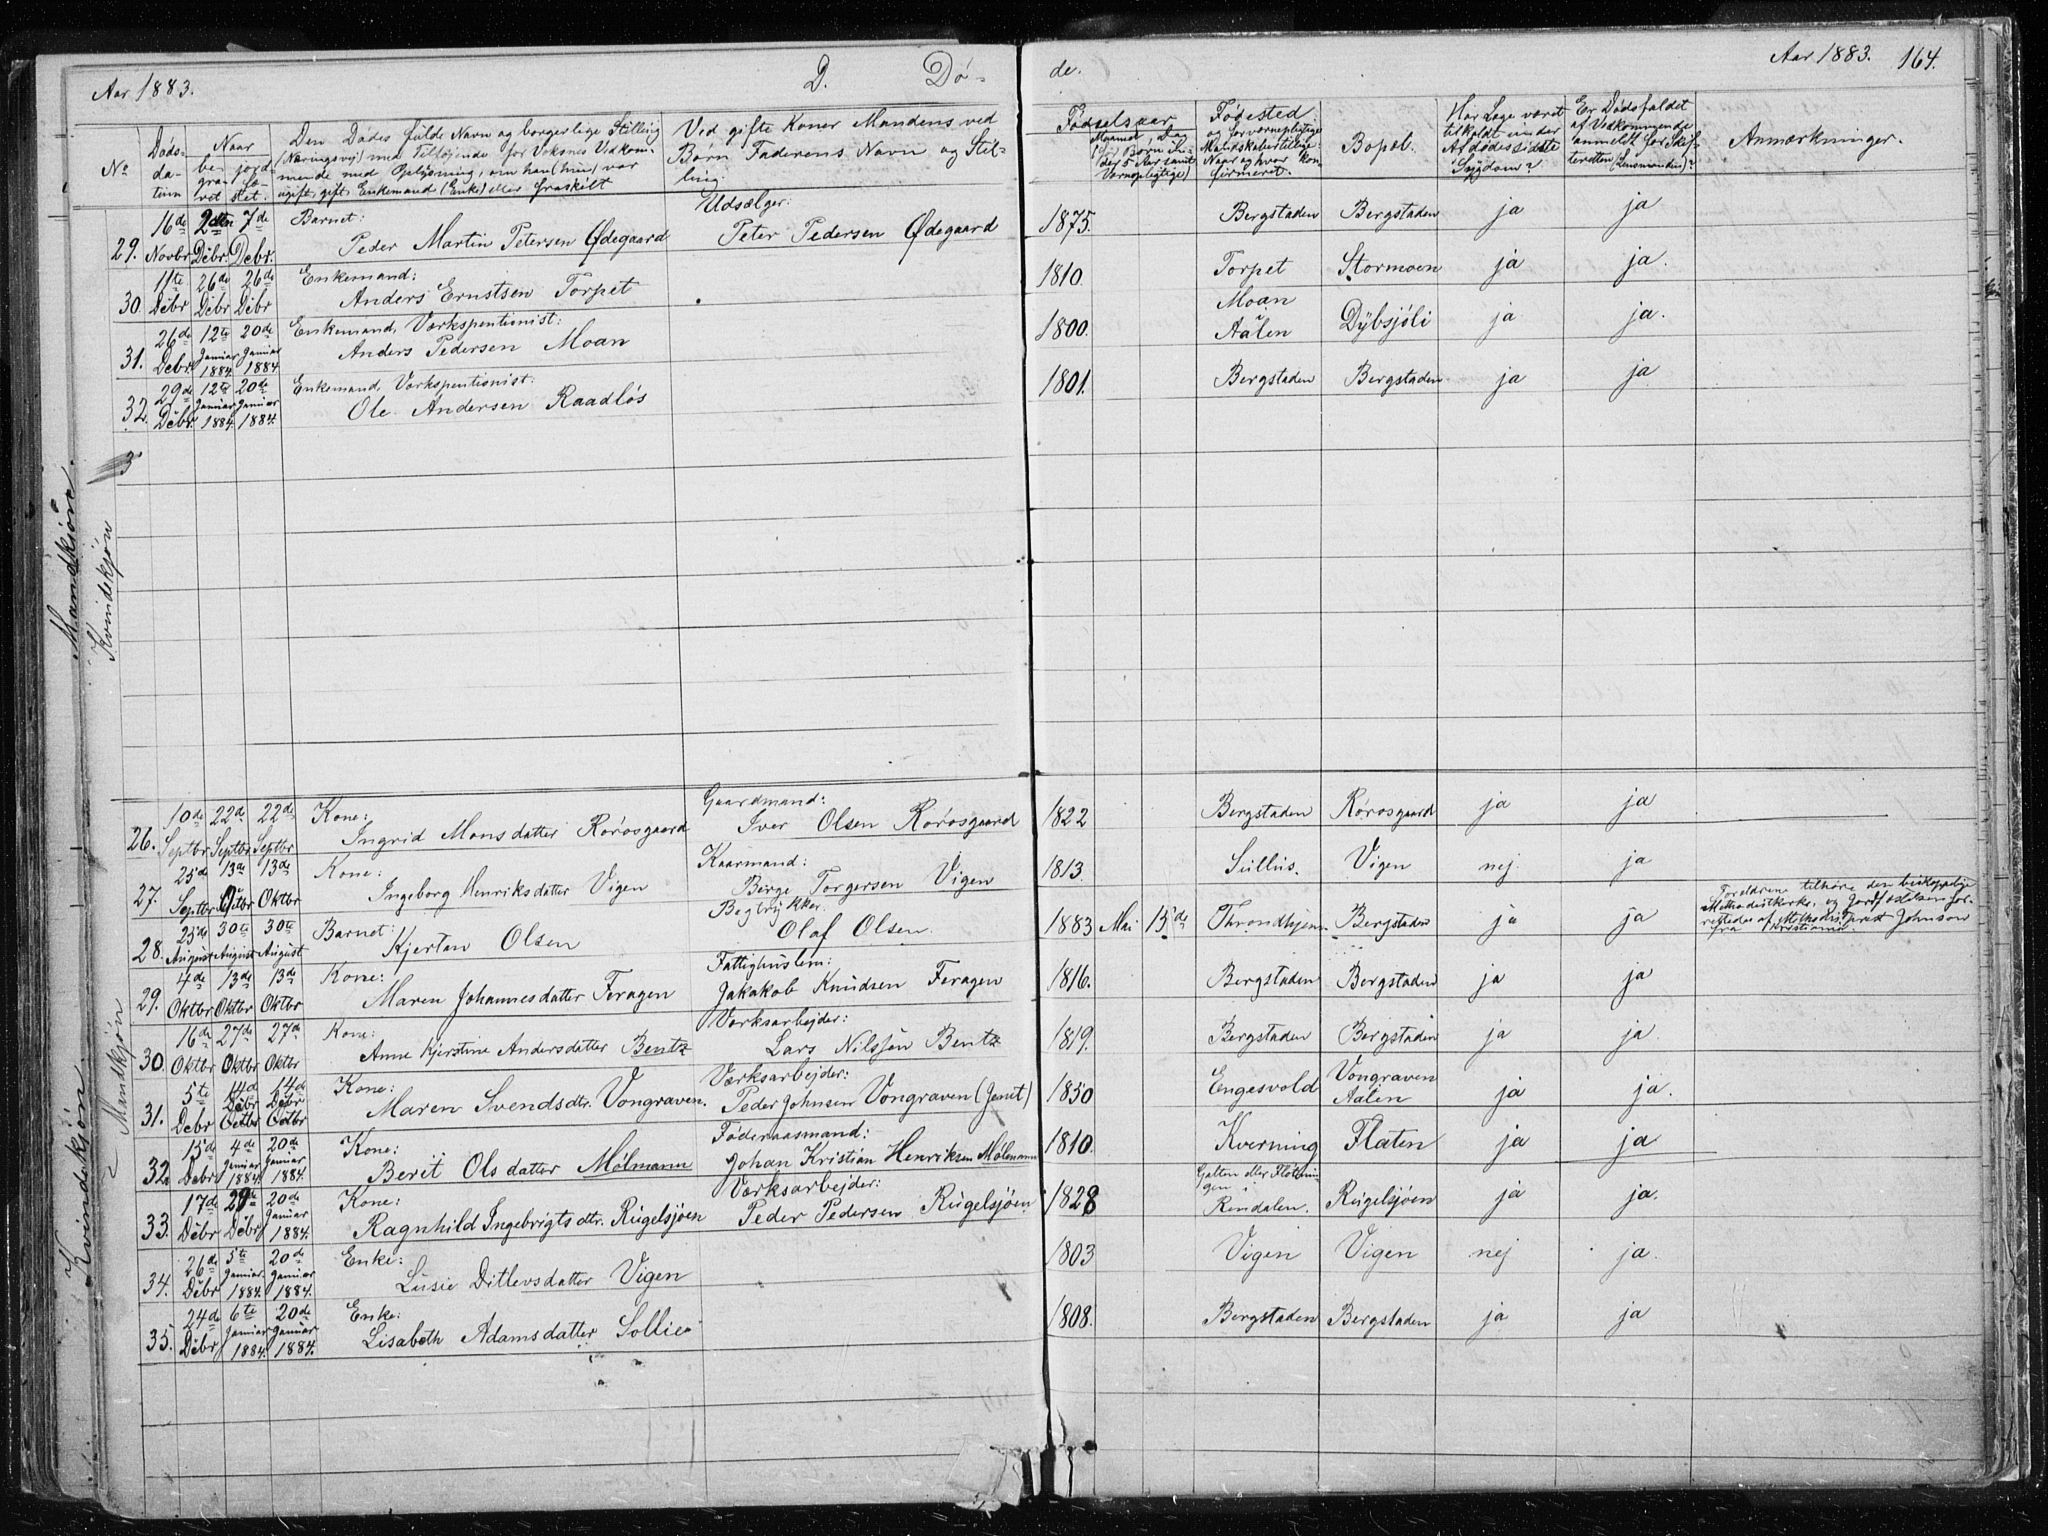 Aar 1883. D. Dø- de. Aar 1883. 164.
No
Døds-
da-
tum
Naar
be- jord-
gra- fæ-
vet stet.
Den Dødes fulde Navn og borgerlige Stilling
(Næringsvej) med Tilføjende for Voksnes Vedkom-
mende med Oplysning, om han (hun) var
ugift, gift, Enkemand (Enke) eller fraskilt
Ved gifte Koner Mandens ved
Børn Faderens Navn og Stil-
ling.
Fødselsaar
Maaned, Dag
Børn un-
der 5 Aar samt
Værnepligtige)
Fødested
og for værnepligtige
Naar og hvor kon-
firmeret.
Bopæl.
Har Læge været
tilkaldt under
Afdødes sidste
Sygdom?
Er Dødsfaldet
af Vedkommende
anmeldt for Skif-
teretten (Lensmanden)?
Anmærkninger.
Mandkjøn.
Kvindekjøn
29. 16de Novbr 2den Debr. 7de Debr. Barnet: Udsælger:
Peder Martin Petersen Ødegaard Peter Pedersen Ødegaard 1875. Bergstaden Bergstaden ja ja
30. 11te Debr 26de Debr 26de Debr Enkemand:
Anders Ernstsen Torpet 1810. Torpet Stormoen ja ja.
31. 26de Debr. 12te Januar 1884 20de Januar 1884 Enkemand, Værkspentionist:
Anders Pedersen Moan 1800. Moan i Aalen Dybsjøli ja ja.
32. 29de Debr. 12te Januar 1884. 20de Januar 1884. Enkemand, Værkspentionist:
Ole Andersen Raadløs 1801. Bergstaden Bergstaden ja ja
Kvindekjøn.
Mandkjøn
26. 10de Septbr 22de Septbr 22de Septbr Kone: Gaardmand:
Ingrid Monsdatter Rørosgaard Iver Olsen Rørosgaard 1822 Bergstaden Rørosgaard ja ja
27. 25de Septbr 13de Oktbr 13de Oktbr Kone: Kaarmand:
Ingeborg Henriksdatter Vigen Berge Torgersen Vigen 1813. Sullus. Vigen nej. ja
28. 25de August 30te August 30te August Barnet: Bogtrykker
Kjertan Olsen Olaf Olsen. 1883 Mai 15de Throndhjem Bergstaden ja ja
Forældrene tilhøre den biskoppelige
Methodistkirke, og Jordfæstelsen for-
rettedes af Methodistpræst Johnson
fra Kristiania.
29. 4de Oktbr 13de Oktbr 13de Oktbr Kone: Fattighuslem:
Maren Johannesdatter Feragen Jakakob Knudsen Feragen 1816. Bergstaden Bergstaden ja ja
30. 16de Oktbr 27de Oktbr 27de Oktbr Kone: Værksarbejder:
Anne Kjerstine Andersdatter Bentz Lars Nilssøn Bentz 1819. Bergstaden Bergstaden ja ja.
31. 5te Debr 14de Debr Octbr 14de Debr Octbr Kone: Værksarbejder:
Maren Svendsdtr. Vongraven. Peder Johnsen Vongraven (Jemt) 1850 Engesvold Vongraven Aalen ja ja.
32. 15de Debr 4de Januar 1884. 20de Januar 1884. Kone: Føderaasmand:
Berit Olsdatter Mølmann Johan Kristian Henriksen Mølmann 1810. Kverning Flaten ja ja.
33. 17de Debr 29de Debr 20de Januar 1884. Kone: Værksarbejder:
Ragnhild Ingebrigtsdtr. Rugelsjøen Peder Pedersen Rugelsjøen 1828 Rugelsjøen ja ja.
34. 26de Debr 5te Januar 1884. 20de Januar 1884. Enke:
Lusie Ditlevsdatter Vigen 1803 Vigen Vigen nej ja.
35. 24de Debr 6te Januar 1884. 20de Januar 1884. Enke:
Lisabeth Adamsdatter Sollie 1808. Bergstaden Bergstaden ja ja